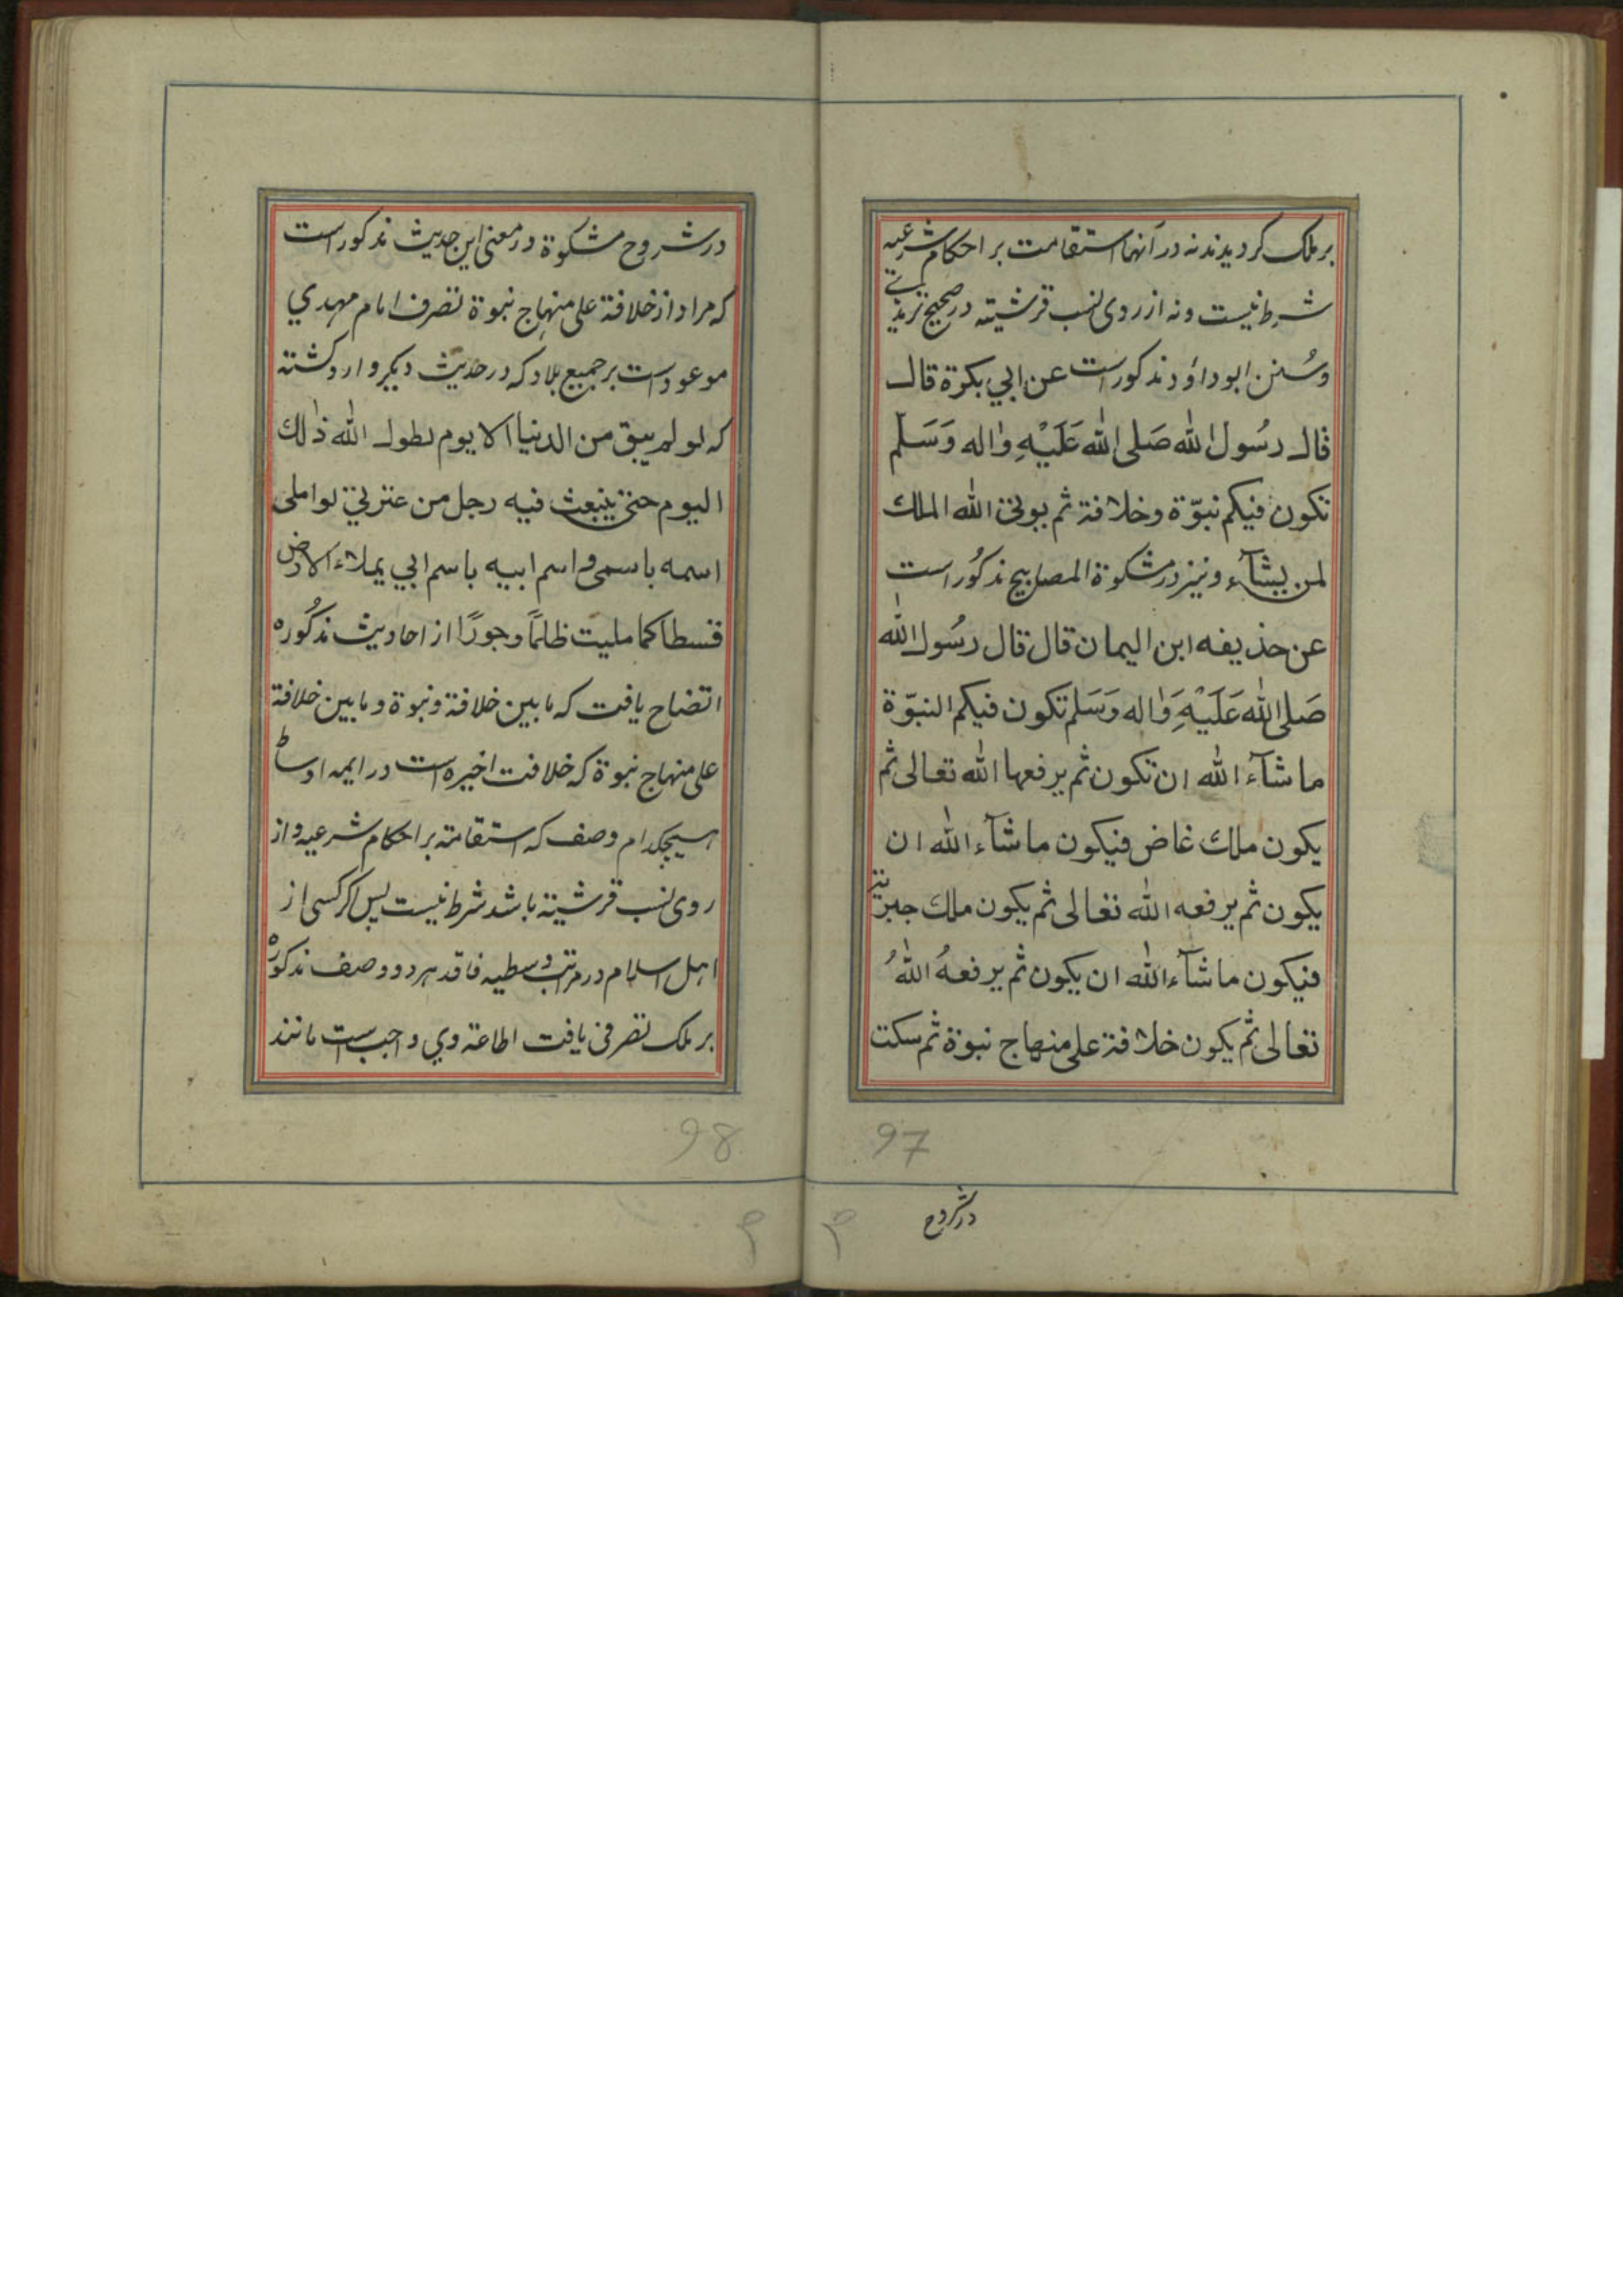 بر ملک کردیدند نه در آنها استقامت بر احکام شرعیه
شرط نیست و نه از روی نسب قرشیته در صحیح ترمذی
وسُنن ابو داؤد مذکور است عن ابي بكرة قال
قال رسُول الله صَلی الله عَلَيْهِ واله وَسَلّم
تكون فيكم نبوّة وخلافة ثم يوتى الله الملك
لمن يشآء و نیز در مشکوة المصابیح مذکُور است
عن حذيفه ابن اليمان قال قال رسُول الله
صَلى الله عَلَيْهِ وَاله وَسَلم تكون فيكم النبوّة
ما شآء الله ان تكون ثم يرفعها الله تعالى ثم
يكون ملك غاض فيكون ما شآء الله ان
يكون ثم يرفعه الله تعالى ثم يكون ملك جبرية
فيكون ما شآء الله ان يكون ثم يرفعهُ اللهُ
تعالى ثم يكون خلافة على منهاج نبوة ثم سكت
97
در شروح
در شروح مشکوة در معنی این حدیث مذکور است
که مراد از خلافة علی منهاج نبوة تصرف امام مهدي
موعود است بر جمیع بلاد که در حدیث دیکر وارد کشته
که لو لم يبق من الدنيا الا يوم لطول الله ذلك
اليوم حتى ينبعث فيه رجل من عترتي لواملى
اسمه باسمى و اسم ابيه باسم ابي يملاء الارض
قسطا كما مليت ظلمًا وجورًا از احادیث مذکُوره
اتضاح یافت که ما بین خلافة و نبوة و ما بین خلافة
علی منهاج نبوة که خلافت اخیره است در ایمه اوساط
هیچکدام وصف که استقامته بر احکام شرعیه و از
روی نسب قرشیته باشد شرط نیست پس اکر کسی از
اهل اسلام در مراتب وسطیه فاقد هر دو وصف مذکوره
بر ملک تصرفی یافت اطاعة وي واجب است مانند
98